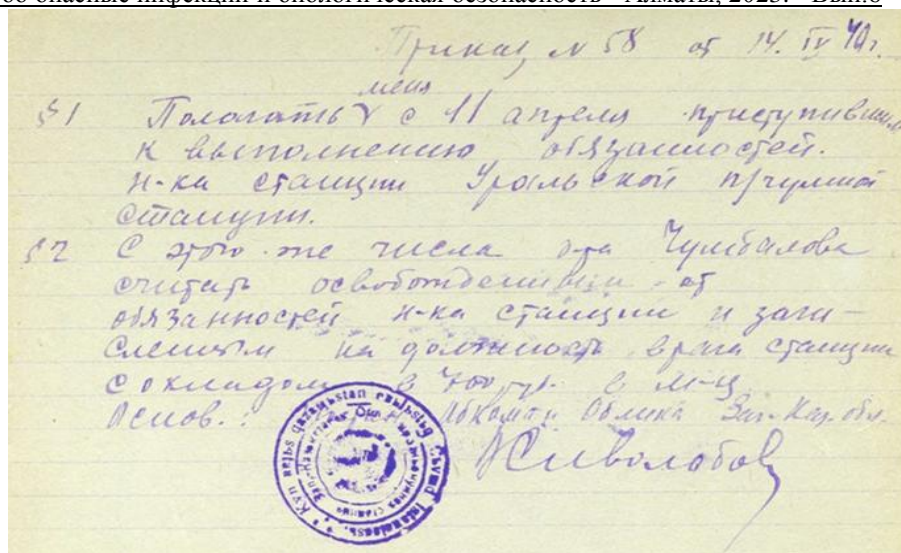 об опасные инфекции и биологическая безопасность - Алматы, 2023. - Вып.6
Приказ N 58 от 14. IV 40г.
меня
§1 Полагать с 11 апреля приступившим
к выполнению обязанностей.
н-ка станции Уральской п/чумной
станции.
§2 С этого же числа д-ра Чумбалова
считать освобожденным от
обязанностей н-ка станции и зачи-
сленным на должность врача станции
с окладом в 700 руб. в м-ц.
Основ.: Зап. Каз. обл.
Сиволобов